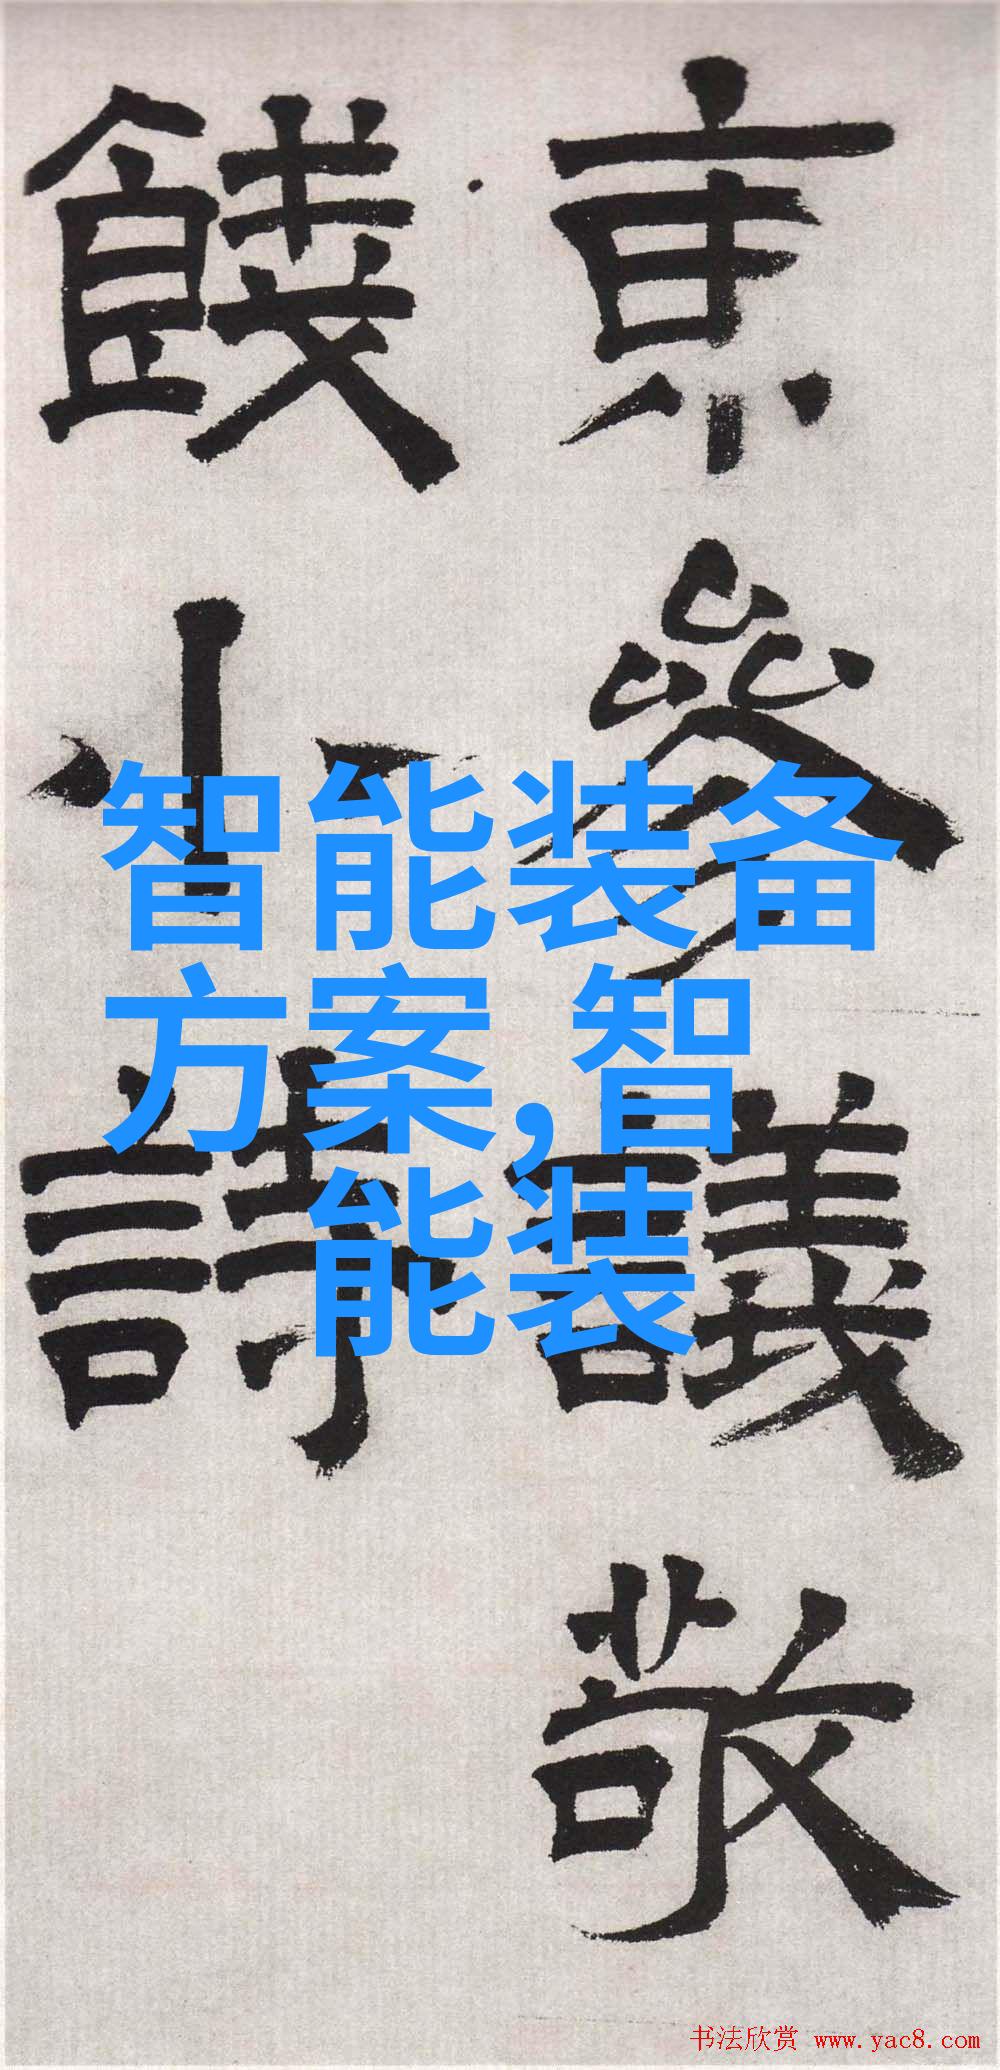 京參議敬
餞小詩
智能装备
方案,智
能装
书法欣赏 www.yac8.com